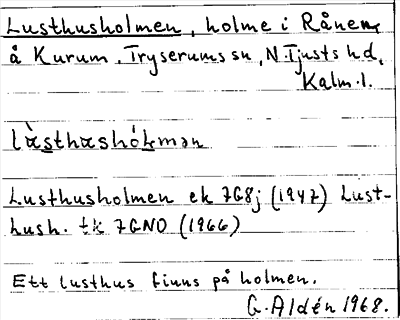 Lusthusholmen, holme i Rånen,
å Kurum, Tryserums sn, N. Tjusts hd,
Kalm. l.
Lusthusholmen ek 7G8j (1947) Lust-
hush. tk 7GNO (1966)
Ett lusthus finns på holmen.
G. Aldén 1968.